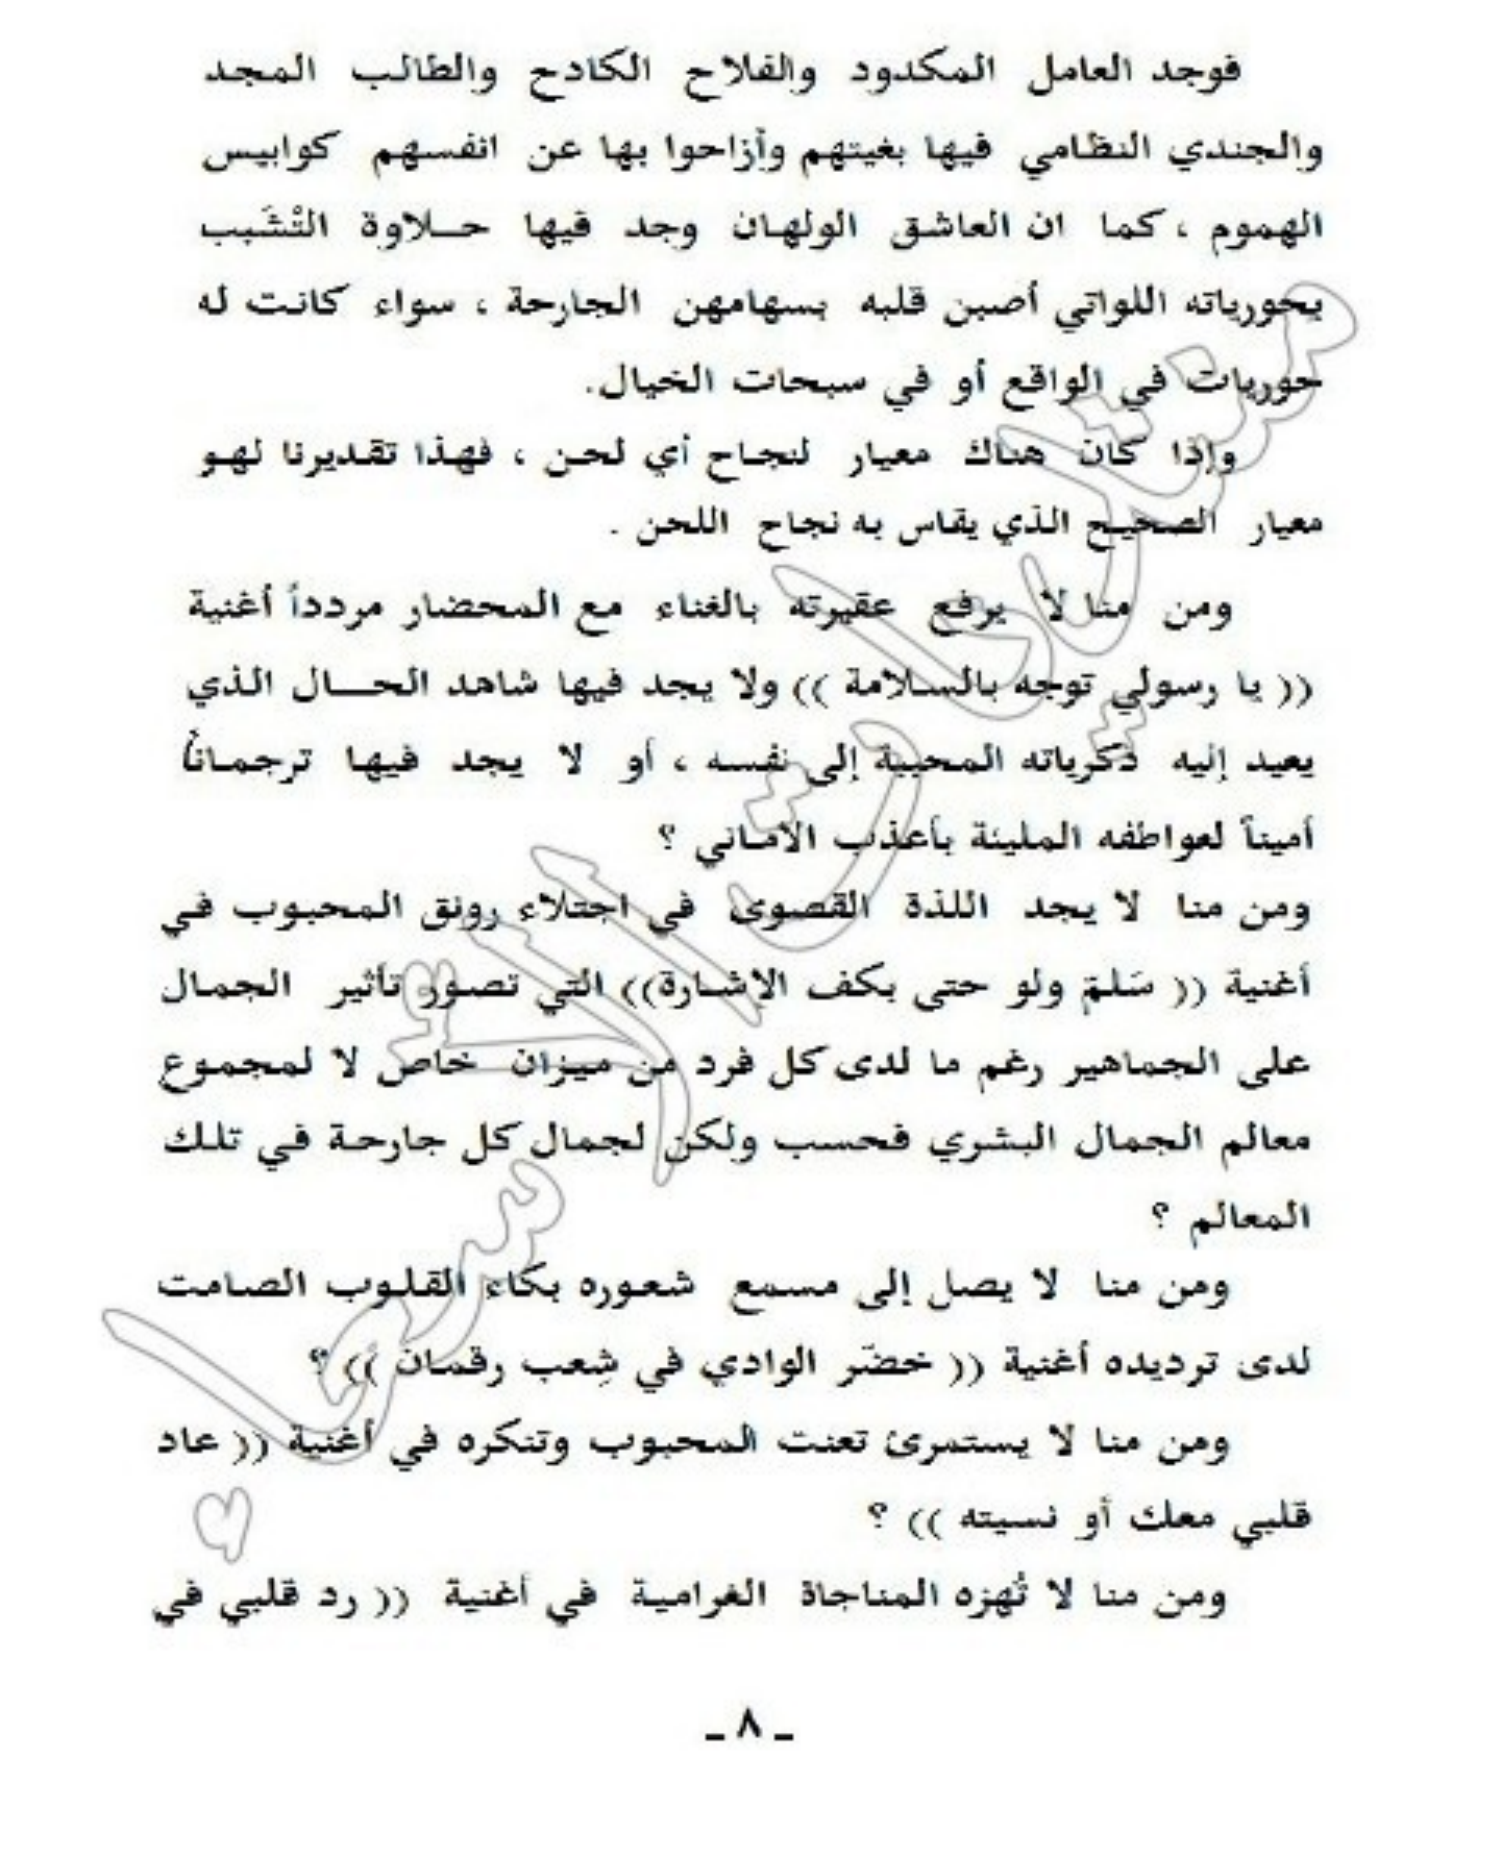 فوجد العامل المكدود والفلاح الكادح والطالب المجد
والجندي النظامي فيها بغيتهم وأزاحوا بها عن انفسهم كوابيس
الهموم ، كما ان العاشق الولهان وجد فيها حلاوة التْشَبب
بحورياته اللواتي أصبن قلبه بسهامهن الجارحة ، سواء كانت له
حوريات في الواقع أو في سبحات الخيال.
وإذا كان هناك معيار لنجاح أي لحن ، فهذا تقديرنا لهو
معيار الصحيح الذي يقاس به نجاح اللحن .
ومن منا لا يرفع عقيرته بالغناء مع المحضار مردداً أغنية
(( يا رسولي توجه بالسلامة )) ولا يجد فيها شاهد الحال الذي
يعيد إليه ذكرياته المحببة إلى نفسه ، أو لا يجد فيها ترجماناً
أميناً لعواطفه المليئة بأعذب الأماني ؟
ومن منا لا يجد اللذة القصوى في اجتلاء رونق المحبوب في
أغنية (( سَلمّ ولو حتى بكف الإشارة)) التي تصور تأثير الجمال
على الجماهير رغم ما لدى كل فرد من ميزان خاص لا لمجموع
معالم الجمال البشري فحسب ولكن لجمال كل جارحة في تلك
المعالم ؟
ومن منا لا يصل إلى مسمع شعوره بكاء القلوب الصامت
لدى ترديده أغنية (( خضّر الوادي في شِعب رقمان )) ؟
ومن منا لا يستمرئ تعنت المحبوب وتنكره في أغنية (( عاد
قلبي معك أو نسيته )) ؟
ومن منا لا تُهزه المناجاة الغرامية في أغنية (( رد قلبي في
ـ ٨ ـ